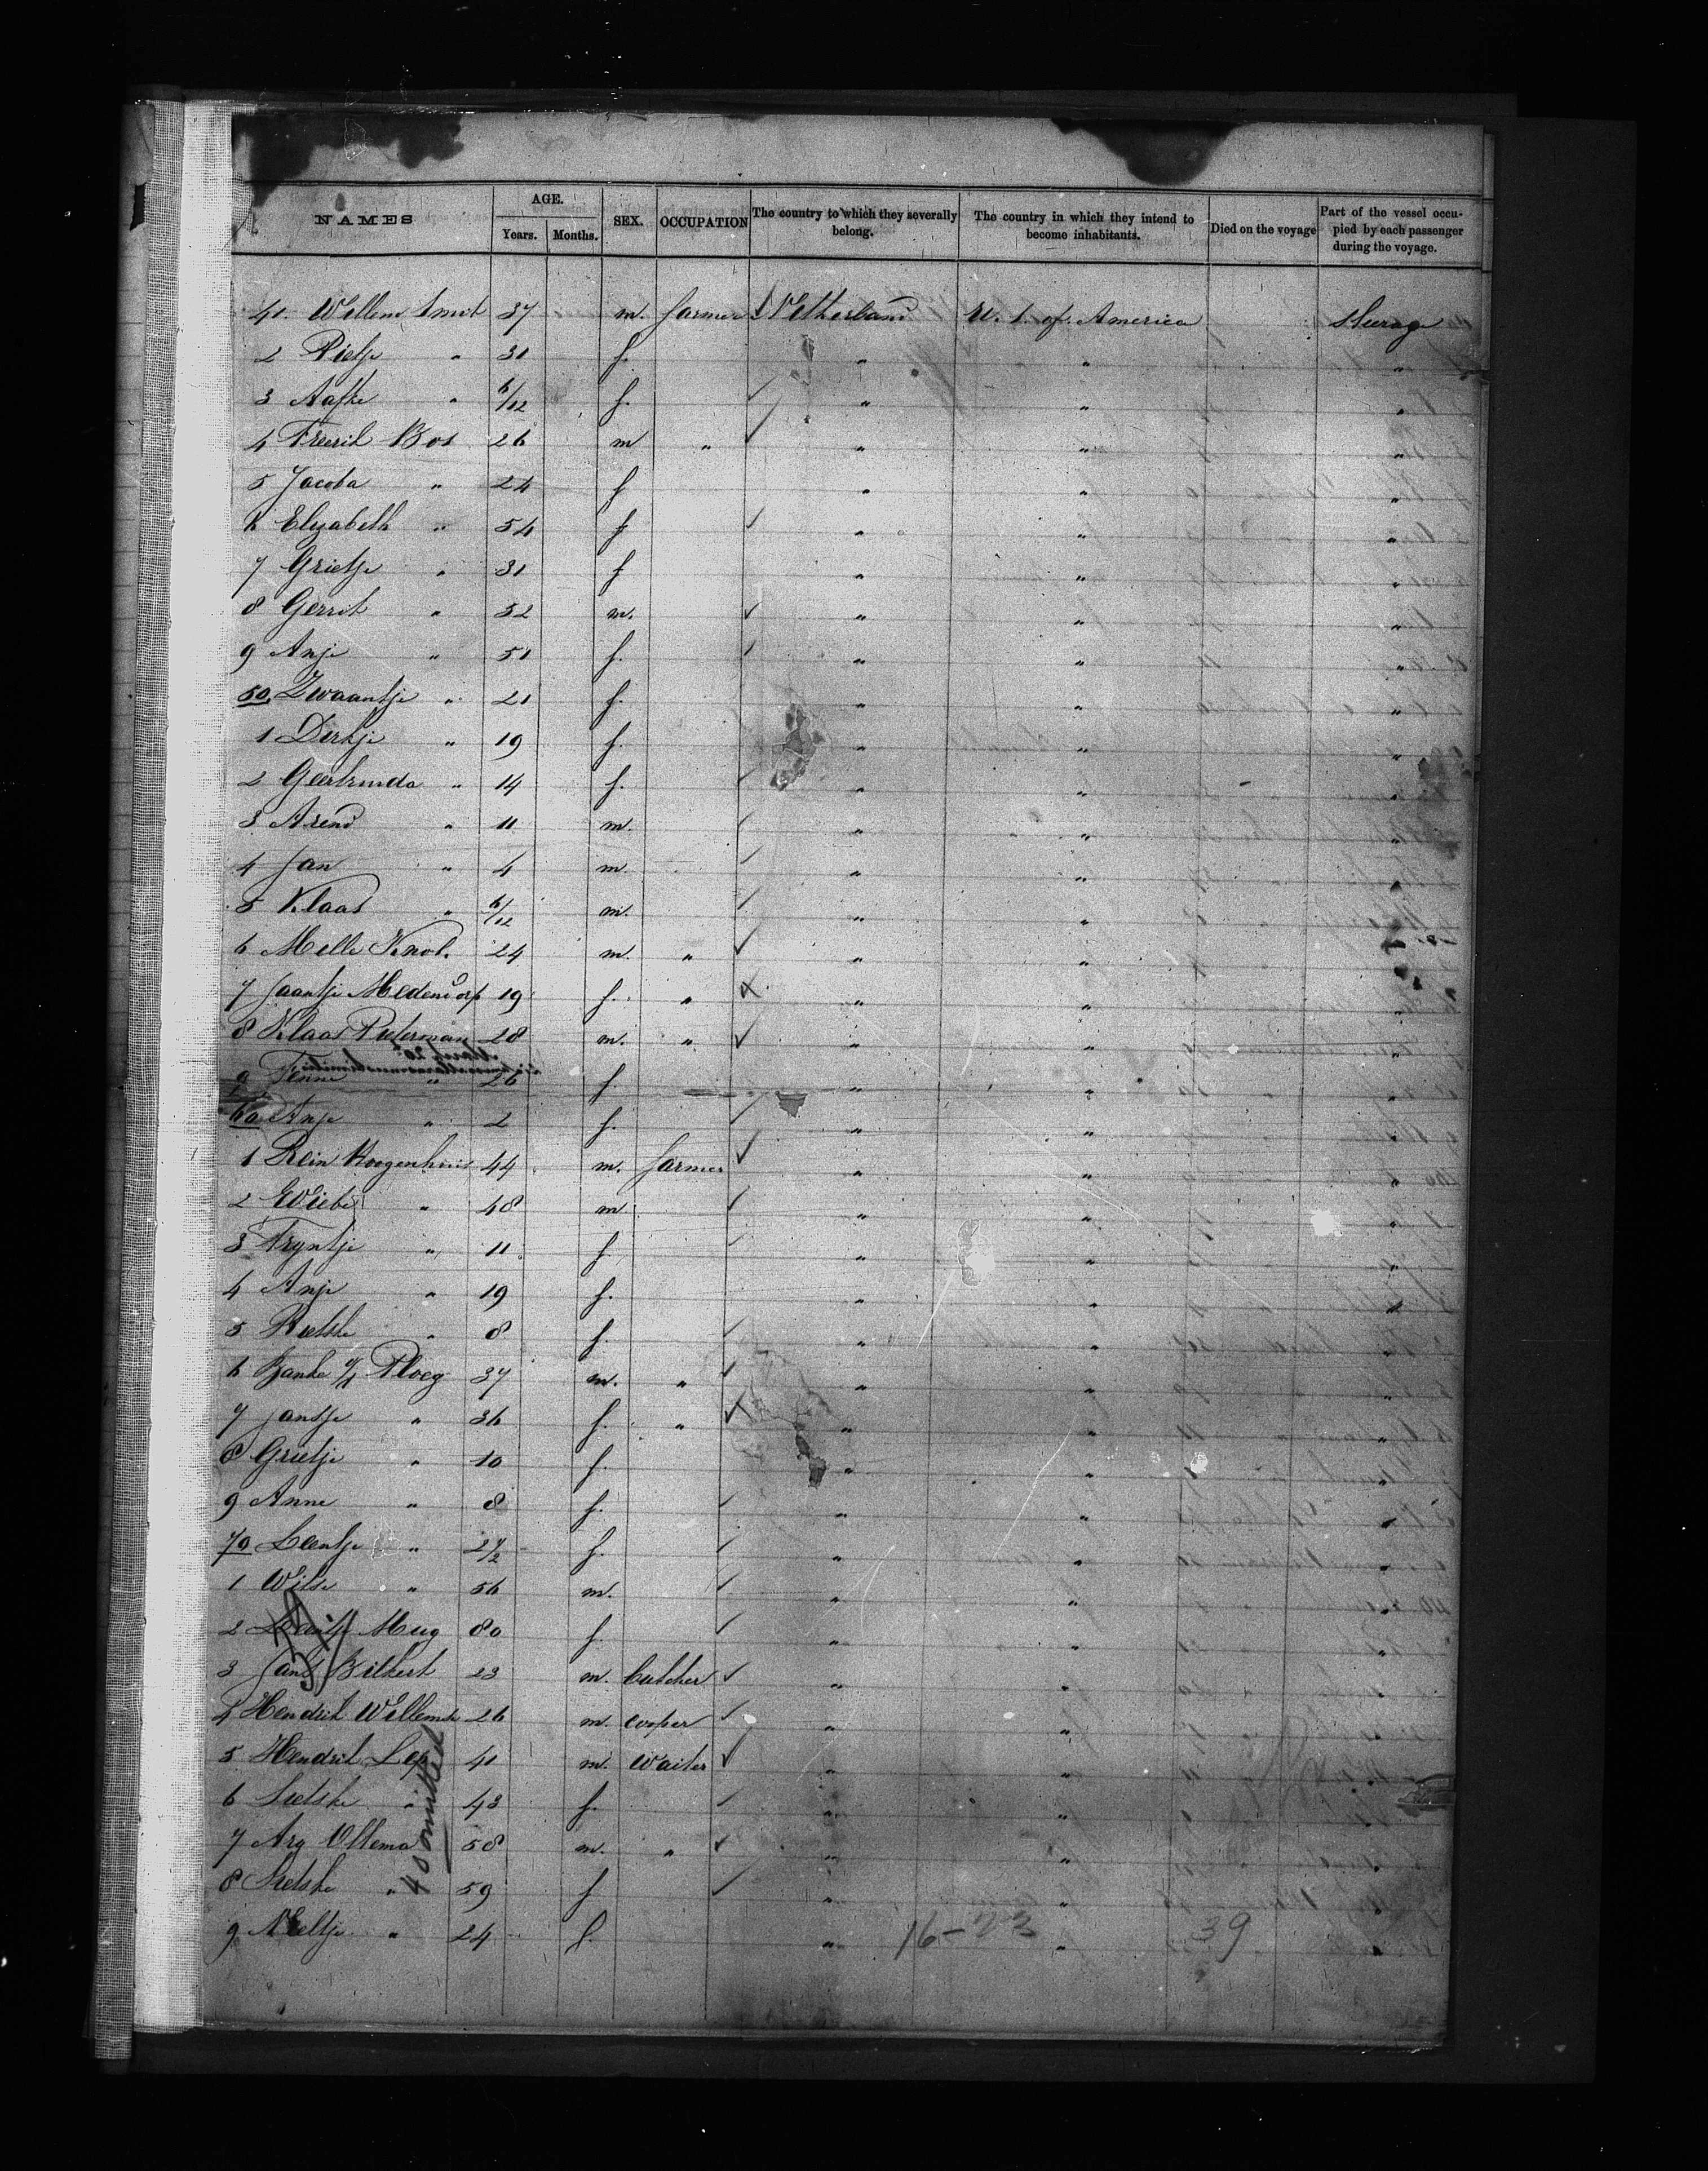 NAMES AGE. Years. Months. SEX. OCCUPATION The country to which they severally belong. The country in which they intend to become inhabitants. Died on the voyage Part of the vessel occupied by each passenger during the voyage.
41. Willem Smit 37 m. farmer Netherland U. S. of America Steerage
2 Pietje " 31 f. " " "
3 Aafke " 6/12 f. " " "
4 Freerik Bos 26 m " " " "
5 Jacoba " 24 f " " "
6 Elizabeth " 54 f " " "
7 Grietje " 31 f " " "
8 Gerrit " 52 m. " " "
9 Anje " 51 f. " " "
50. Zwaantje " 21 f. " " "
1 Dirkje " 19 f. " " "
2 Geertruida " 14 f. " " "
3 Arend " 11 m. " " "
4 Jan " 4 m. " " "
5 Klaas " 6/12 m. " " "
6 Melle Knol. 24 m. " " " "
7 Jaantje Medendorp 19 f. " " " "
8 Klaas Pieterman 28 m. " " " "
9 Fenne " 26 f. " " "
60 Anje " 2 f. " " "
1 Rein Hoogenhuis 44 m. farmer " " "
2 Wiebe " 48 m " " "
3 Tryntje " 11 f. " " "
4 Anje " 19 f. " " "
5 " 8 f. " " "
6 v/d Ploeg 37 m. " " " "
7 Jantje " 36 f. " " " "
8 Grietje " 10 f. " " "
9 Anne " 8 f. " " "
70 Leentje " f. " " "
1 " 56 m. " " "
2 Mug 80 f. " " "
3 Bilkert 23 m. butcher " " "
4 Hendrik Willems 26 m. cooper " " "
5 Hendrik 41 m. Waiter " " "
6 Sietske " 43 f. " " "
7 Ary Ollema 58 m. " " " "
8 Sietske " 59 f " " "
9 Neeltje " 24 f. " " "
40 omitted
16-23 39